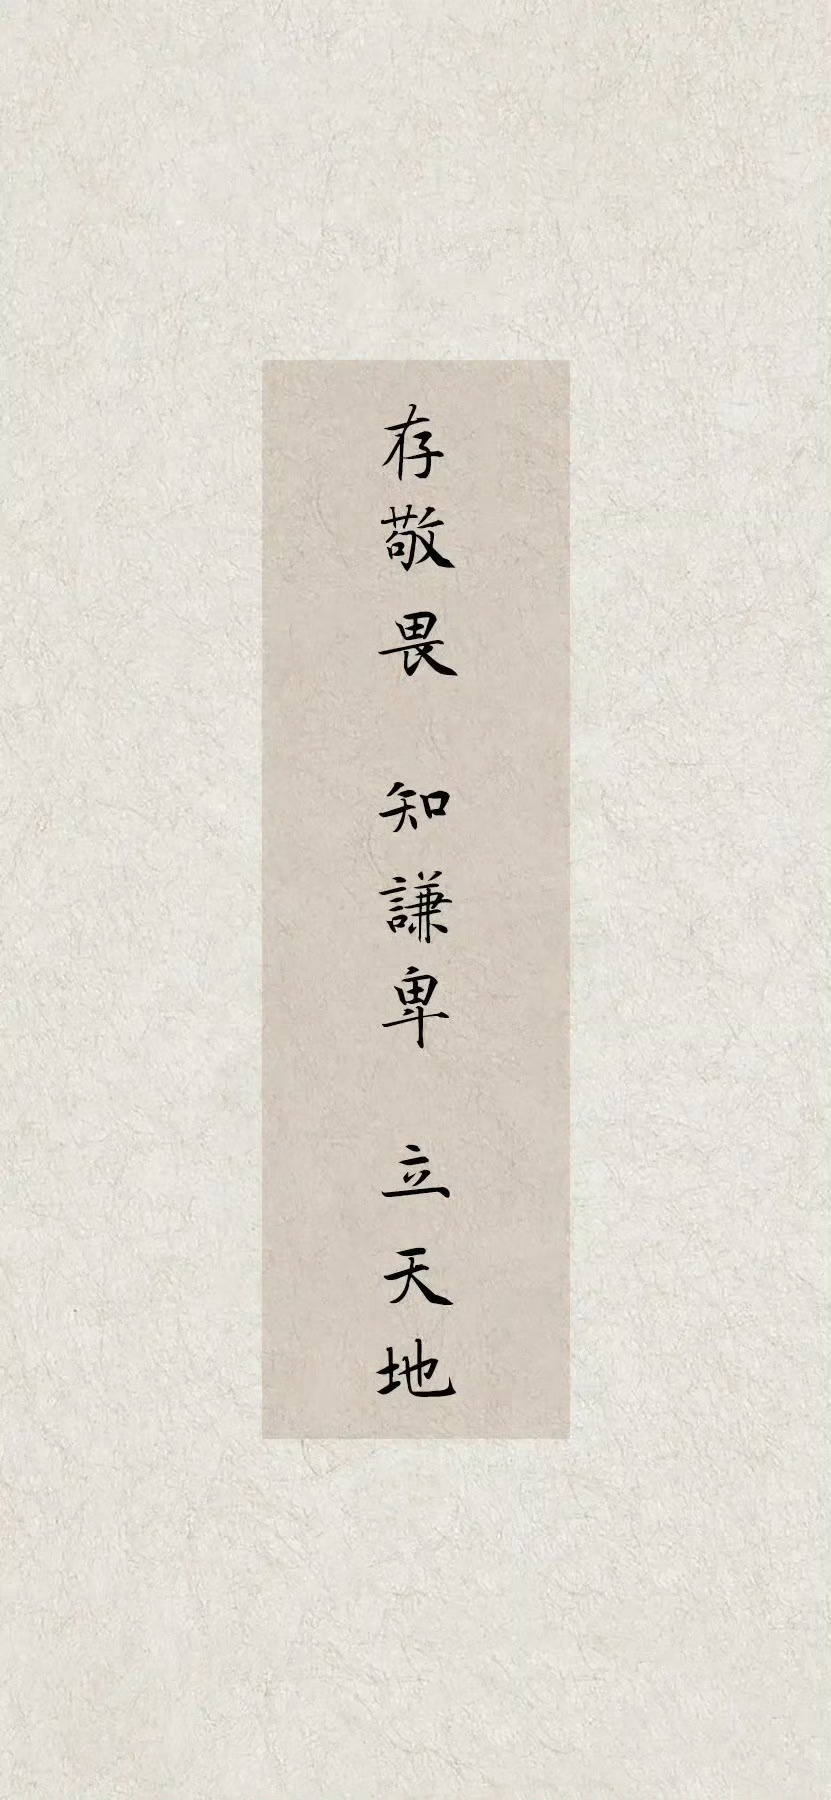 存敬畏 知謙卑 立天地